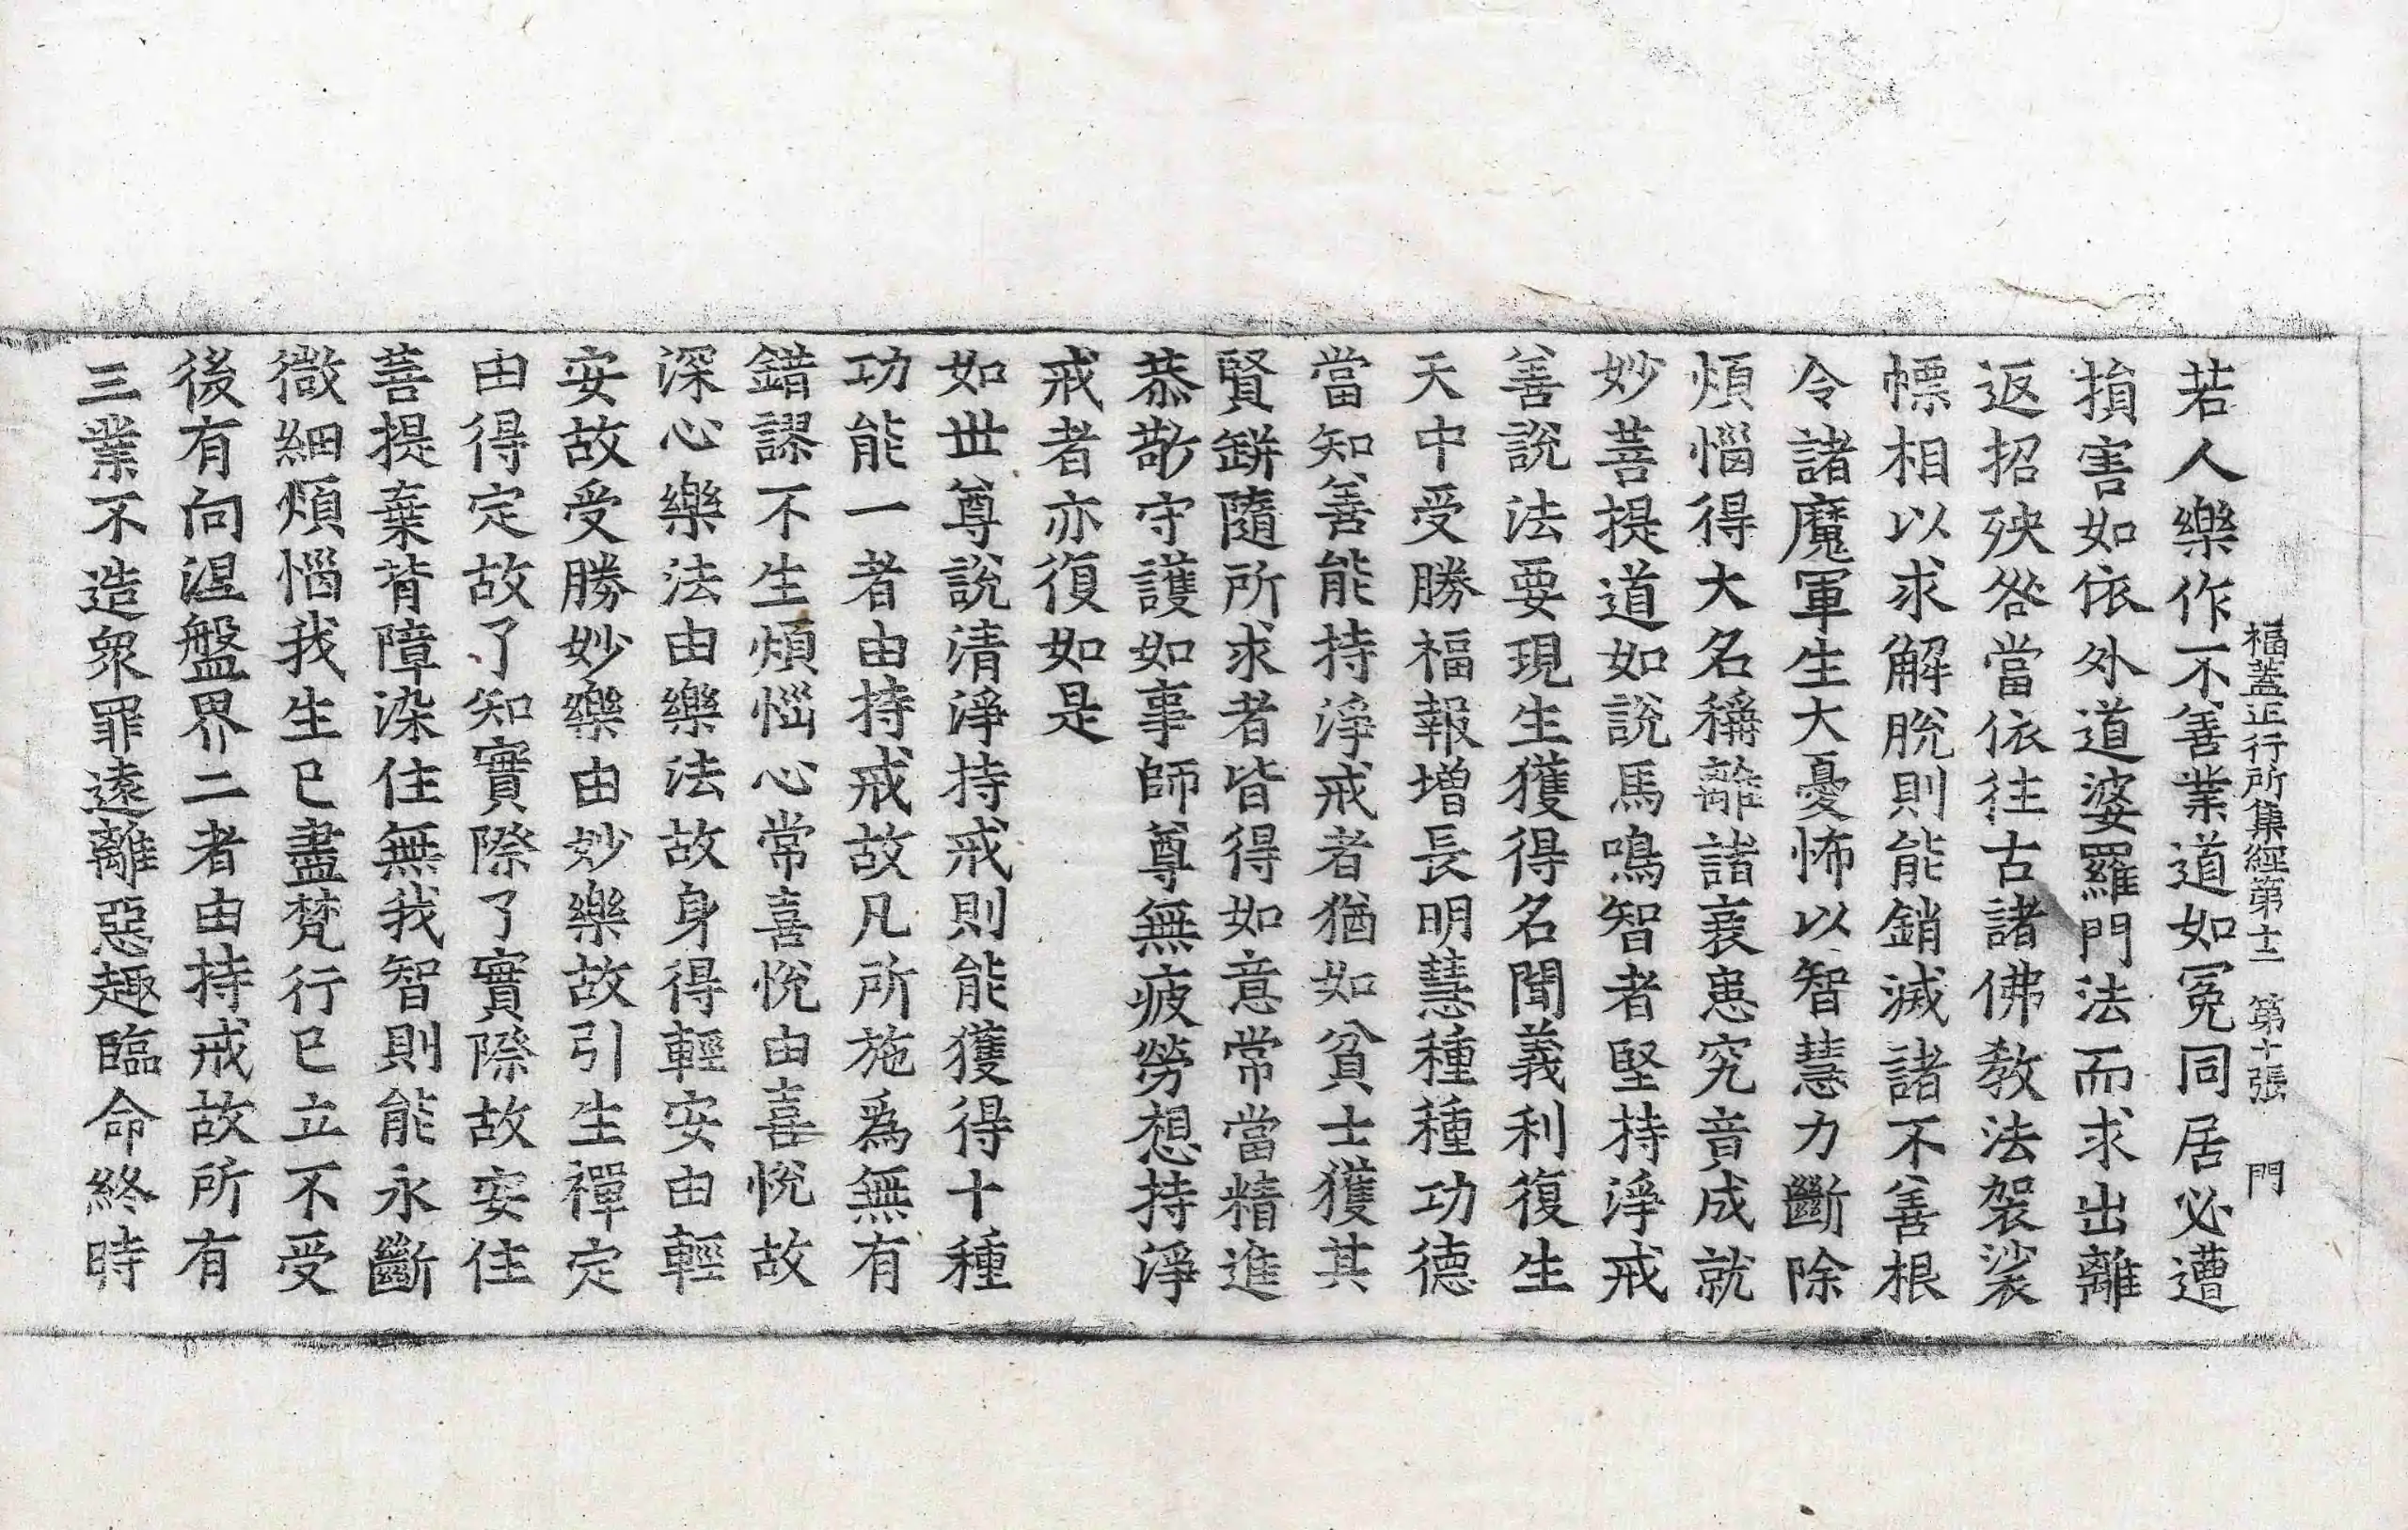 福蓋正行所集經第十二 第十張 門
若人樂作不善業道如冤同居必遭
損害如依外道婆羅門法而求出離
返招殃咎當依往古諸佛教法袈裟
幖相以求解脫則能銷滅諸不善根
令諸魔軍生大憂怖以智慧力斷除
煩惱得大名稱離諸衰患究竟成就
妙菩提道如說馬鳴智者堅持淨戒
善說法要現生獲得名聞義利復生
天中受勝福報增長明慧種種功德
當知善能持淨戒者猶如貧士獲其
賢缾隨所求者皆得如意常當精進
恭敬守護如事師尊無疲勞想持淨
戒者亦復如是
如世尊說清淨持戒則能獲得十種
功能一者由持戒故凡所施爲無有
錯謬不生煩惱心常喜悅由喜悅故
深心樂法由樂法故身得輕安由輕
安故受勝妙樂由妙樂故引生禪定
由得定故了知實際了實際故安住
菩提棄背障染住無我智則能永斷
微細煩惱我生已盡梵行已立不受
後有向涅盤界二者由持戒故所有
三業不造衆罪遠離惡趣臨命終時